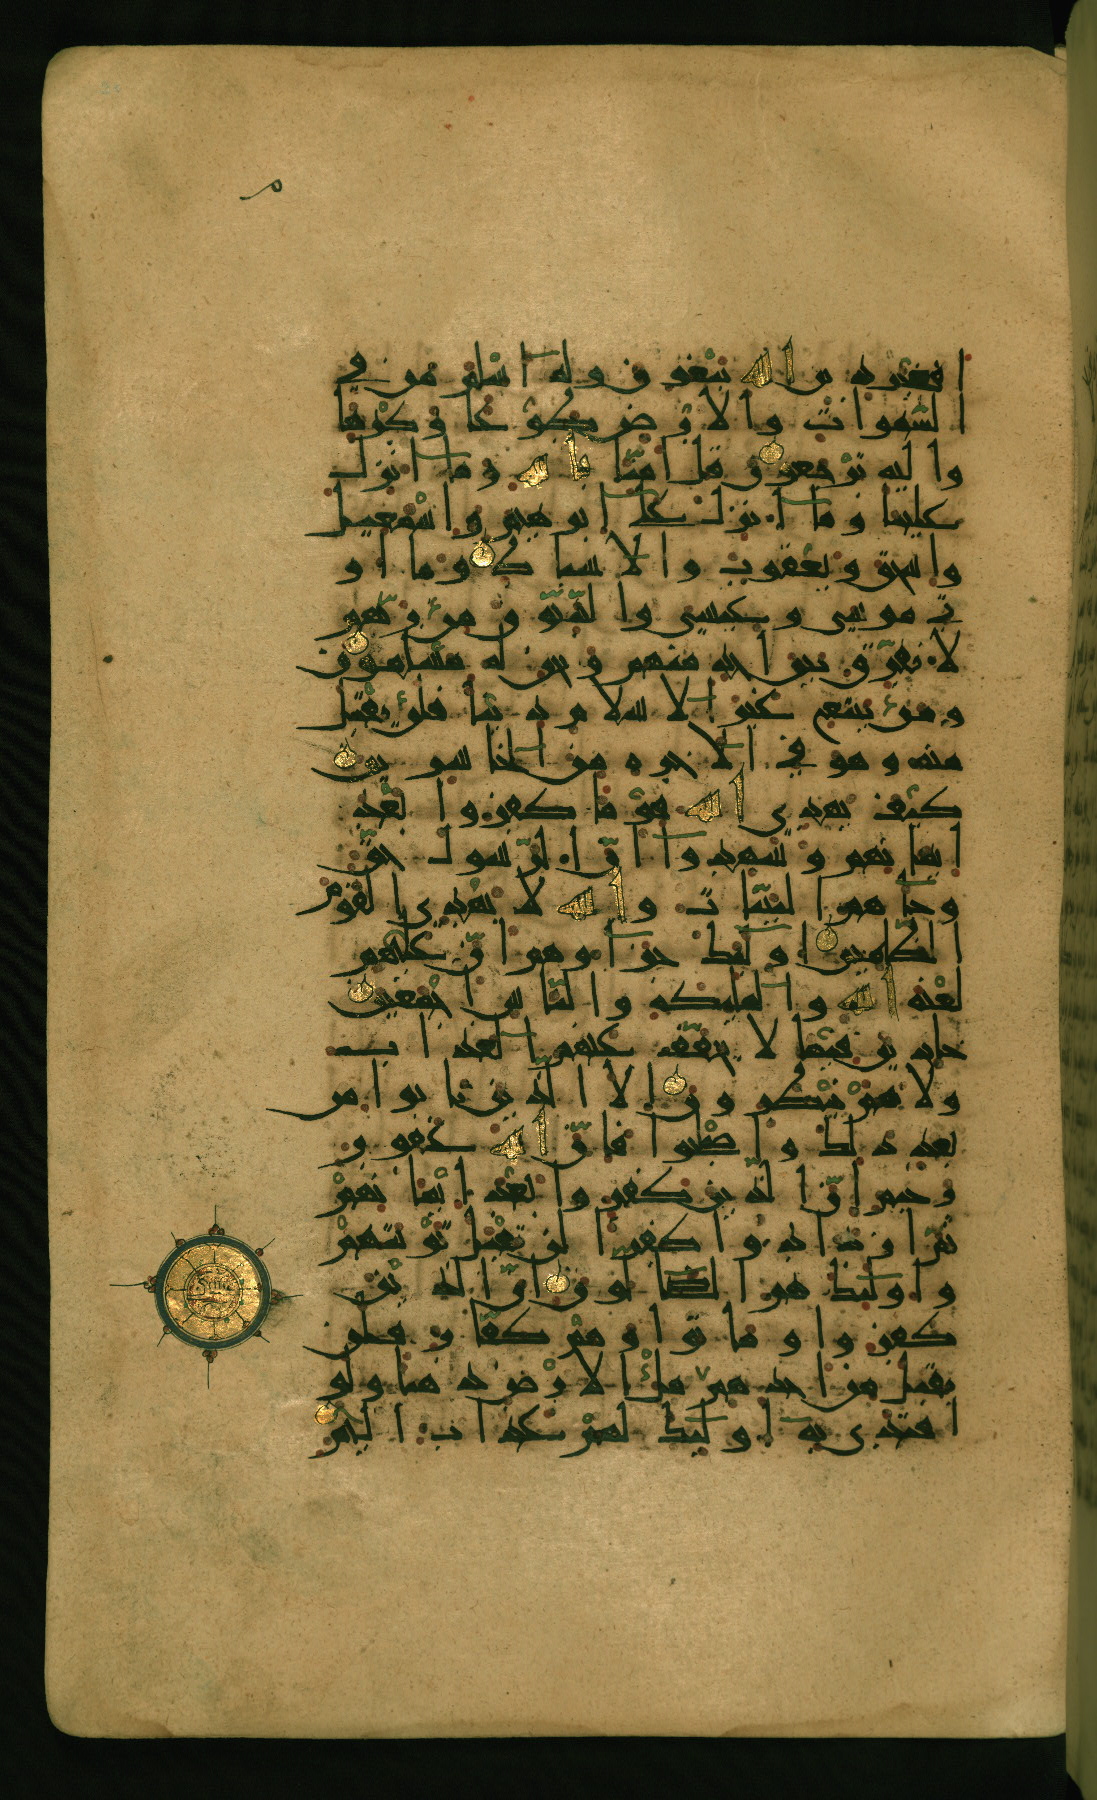 افغير دين الله يبغون وله اسلم من في
السموات والارض طوعا وكرها
واليه ترجعون قل امنا بالله وما انزل
علينا وما انزل على ابرهيم واسمعيل
واسحق ويعقوب والاسباط وما او
تي موسى وعيسى والنبيون من ربهم
لا نفرق بين احد منهم ونحن له مسلمون
ومن يبتغ غير الاسلام دينا فلن يقبل
منه وهو في الاخرة من الخاسرين
كيف يهدي الله قوما كفروا بعد
ايمانهم وشهدوا ان الرسول حق
وجاهم البينات والله لا يهدي القوم
الظالمين اولئك جزاوهم ان عليهم
لعنة الله والملئكة والناس اجمعين
خالدين فيها لا يخفف عنهم العذاب
ولا هم ينظرون الا الذين تابوا من
بعد ذلك واصلحوا فان الله غفور
رحيم ان الذين كفروا بعد ايمانهم
ثم ازدادوا كفرا لن تقبل توبتهم
واولئك هم الضالون ان الذين
كفروا وماتوا وهم كفار فلن
يقبل من احدهم مل الارض ذهبا ولو
افتدى به اولئك لهم عذاب اليم